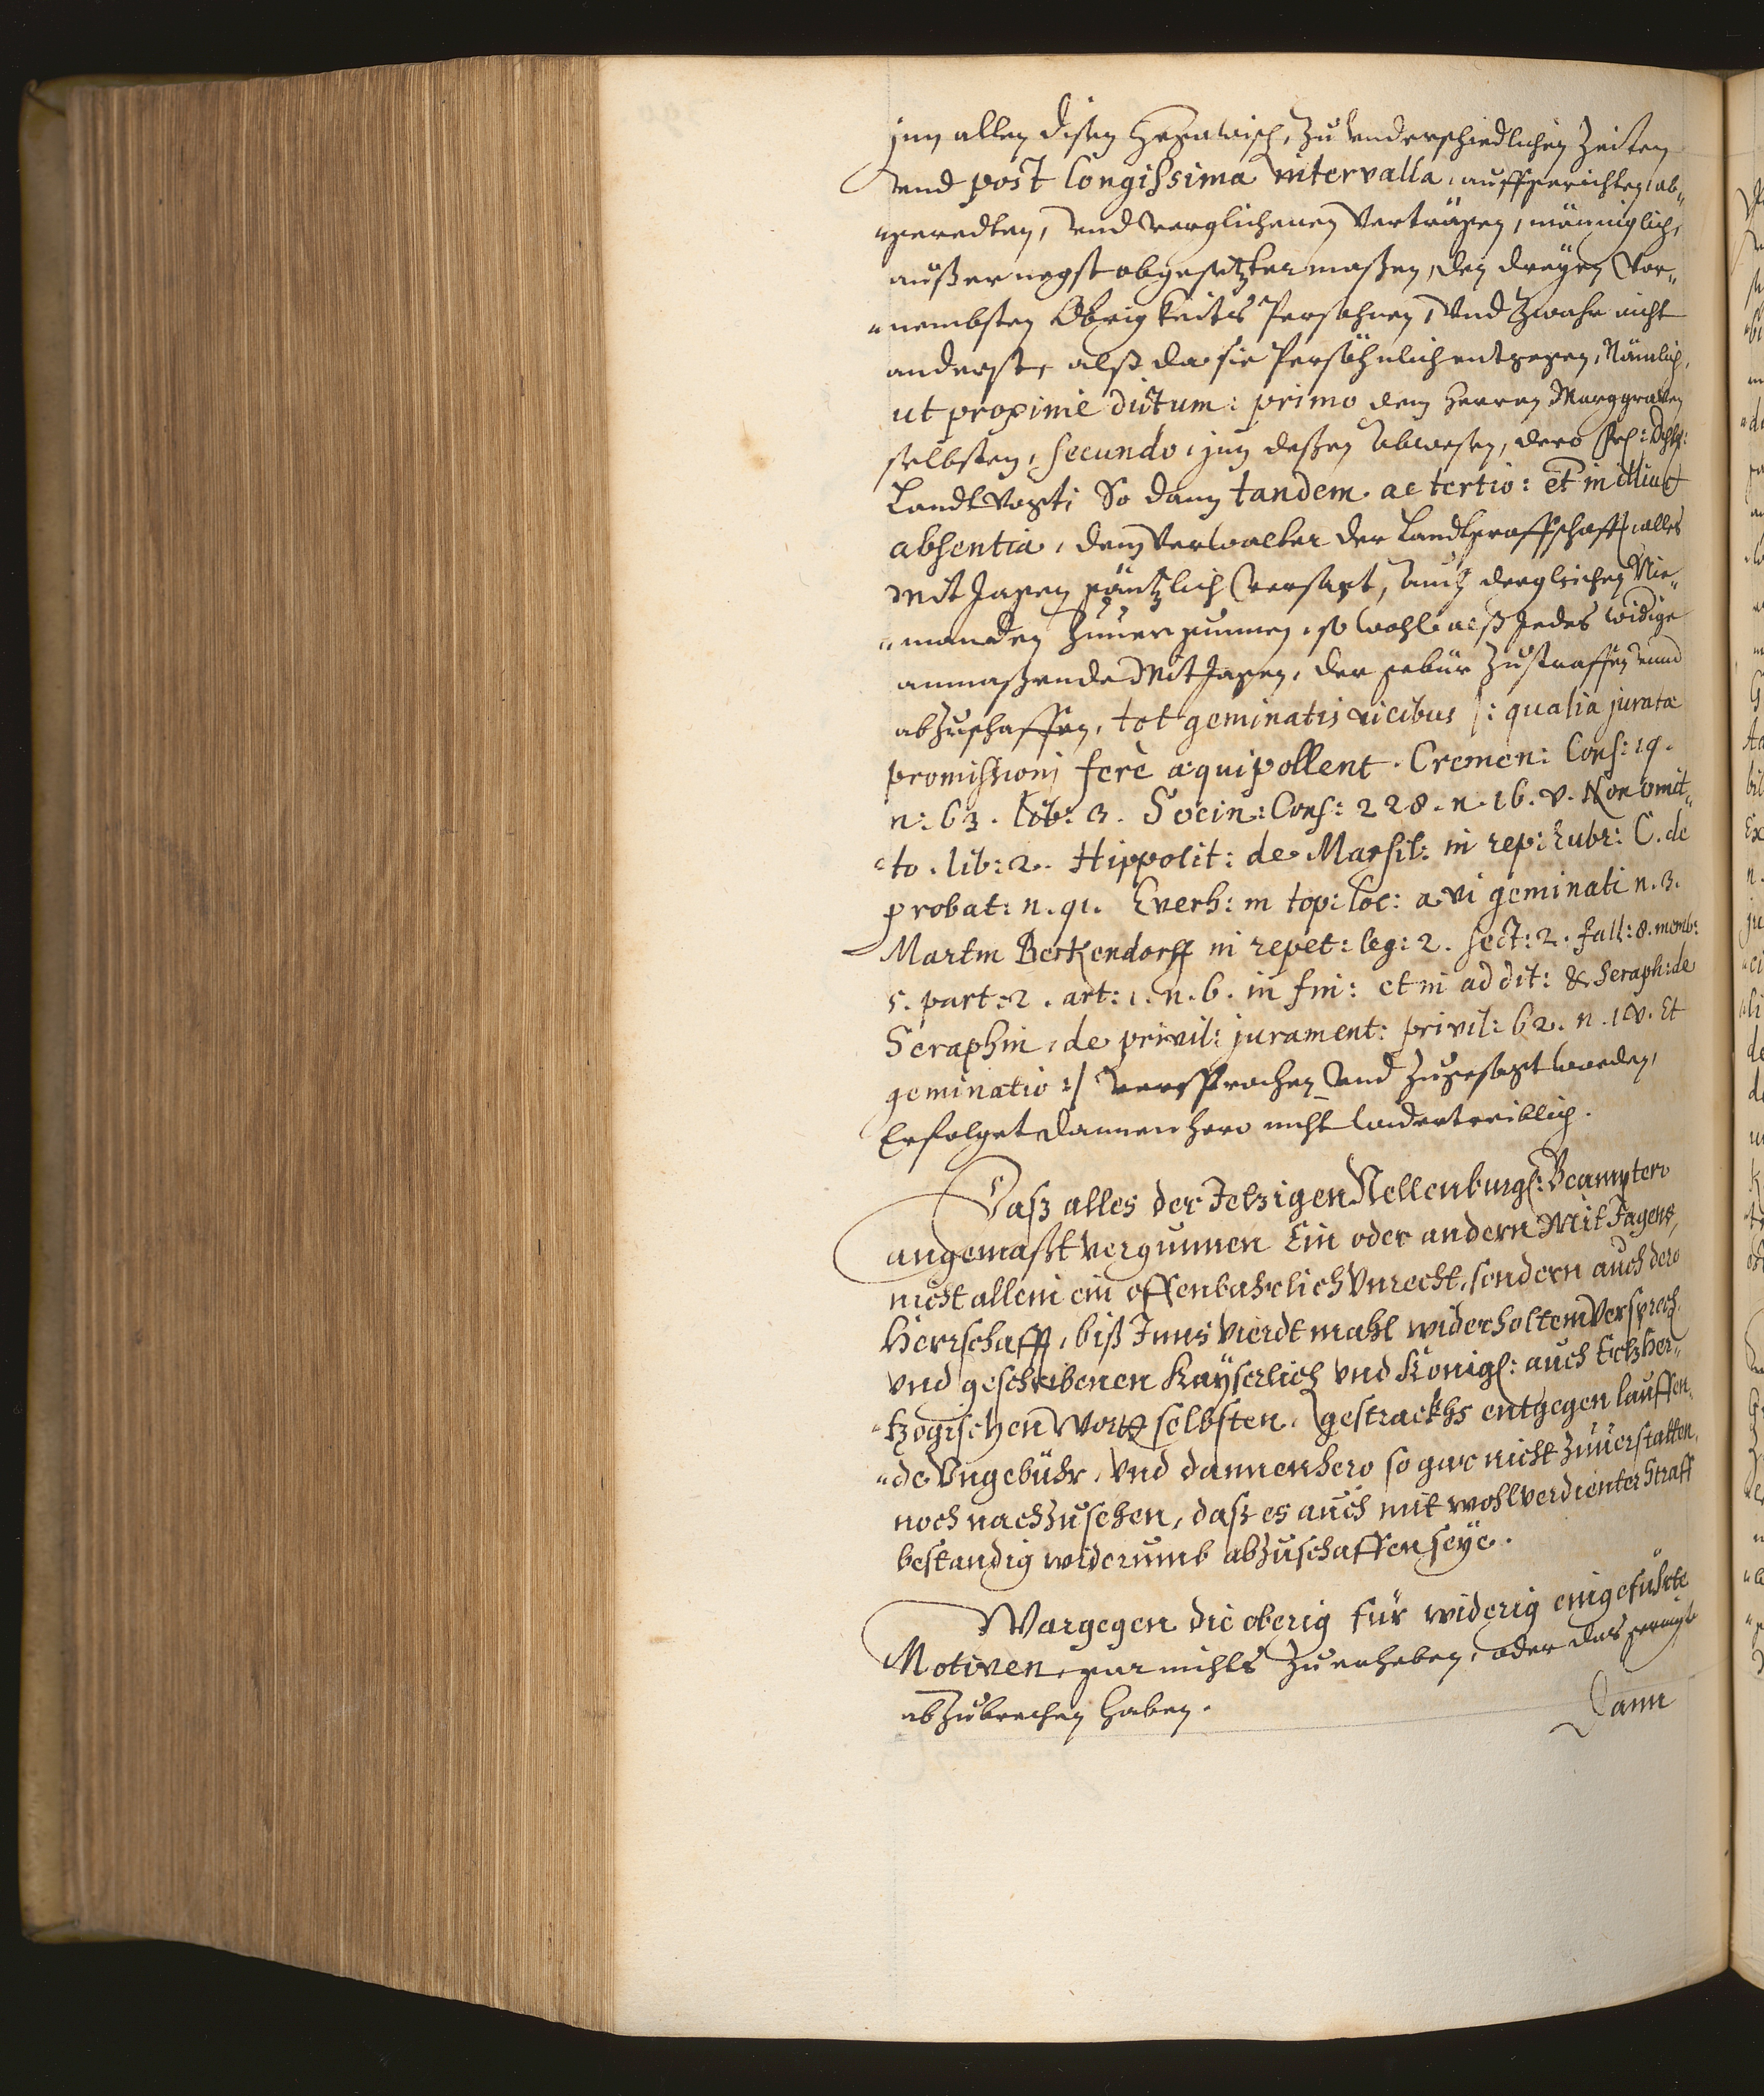 jnn allen disen Hegawisch, zu vnderschiedlichen Zeiten
vnd post longissima intervalla, auffgerichten, ab„
„geredten, vnd verglichenen Verträgen, männiglich,
ausser negst obgesetzter massen, den dreyen Vor„
„nembsten Obrigkeits Persohnen, Vnd zwahr nicht
anderst, alß da sie Persöhnlich entgegen, Nämlich,
ut proxime dictum: primo dem Herren Marggraven
selbsten, secundo, jnn dessen abwesen, dero
Landtvogt, So dann tandem ac tertio: et in illius
absentia, dem Verwalter der Landtgraffschafft, alles
Mit Jagen gäntzlich versagt, auch dergleichen Nie„
„manden zuuergunnen, so wohl alß Jedes widige
anmassende Mit Jagen, der gebür zustraffen vnnd
abzuschaffen, tot geminatis vicibus /: qualia juratæ
promissioni ferè æquipollent. Cremen: Cons: 19.
n: 63. lib: 3. Socin: Cons: 228. n. 16. v. Non omit„
„to. lib: 2. Hippolit: de Marsil: in rep: Rubr: C. de
probat: n. 91. Everh: in top: loc: a vi geminati n. 3.
Martin Berkendorff in repet: leg: 2. sect: 2. fall: 8. memb:
5. part: 2. art: 1. n. 6. in fin: et in addit: & Seraph: de
Seraphin, de privil: jurament: privil: 62. n. 10. v. Et
geminatio :/ versprochen vnd zugesagt worden,
Erfolget dannenhero nicht widertreiblich.
Daß alles der Jetzigen Nellenburg: Beampten
angemaßt vergunnen Ein oder andern Mit Jagens,
nicht allein ein offenbahrlich Vnrecht, sondern auch dero
Herrschafft, biß Inns vierdt mahl widerholtem Versprech,
vnd geschribenen Kayserlich vnd Königl: auch Ertzher„
„tzogischen Wortt selbsten, gestrackhs entgegen lauffen„
„de Vngebühr, vnd dannenhero so gar nicht zuuerstatten,
noch nachzusehen, daß es auch mit wohlverdienter Straff
bestandig widerumb abzuschaffen seye.
Wargegen die oberig für widerig eingeführte
Motiven, gar nichts zu erheben, oder das geringste
abzubrechen haben.
Dann